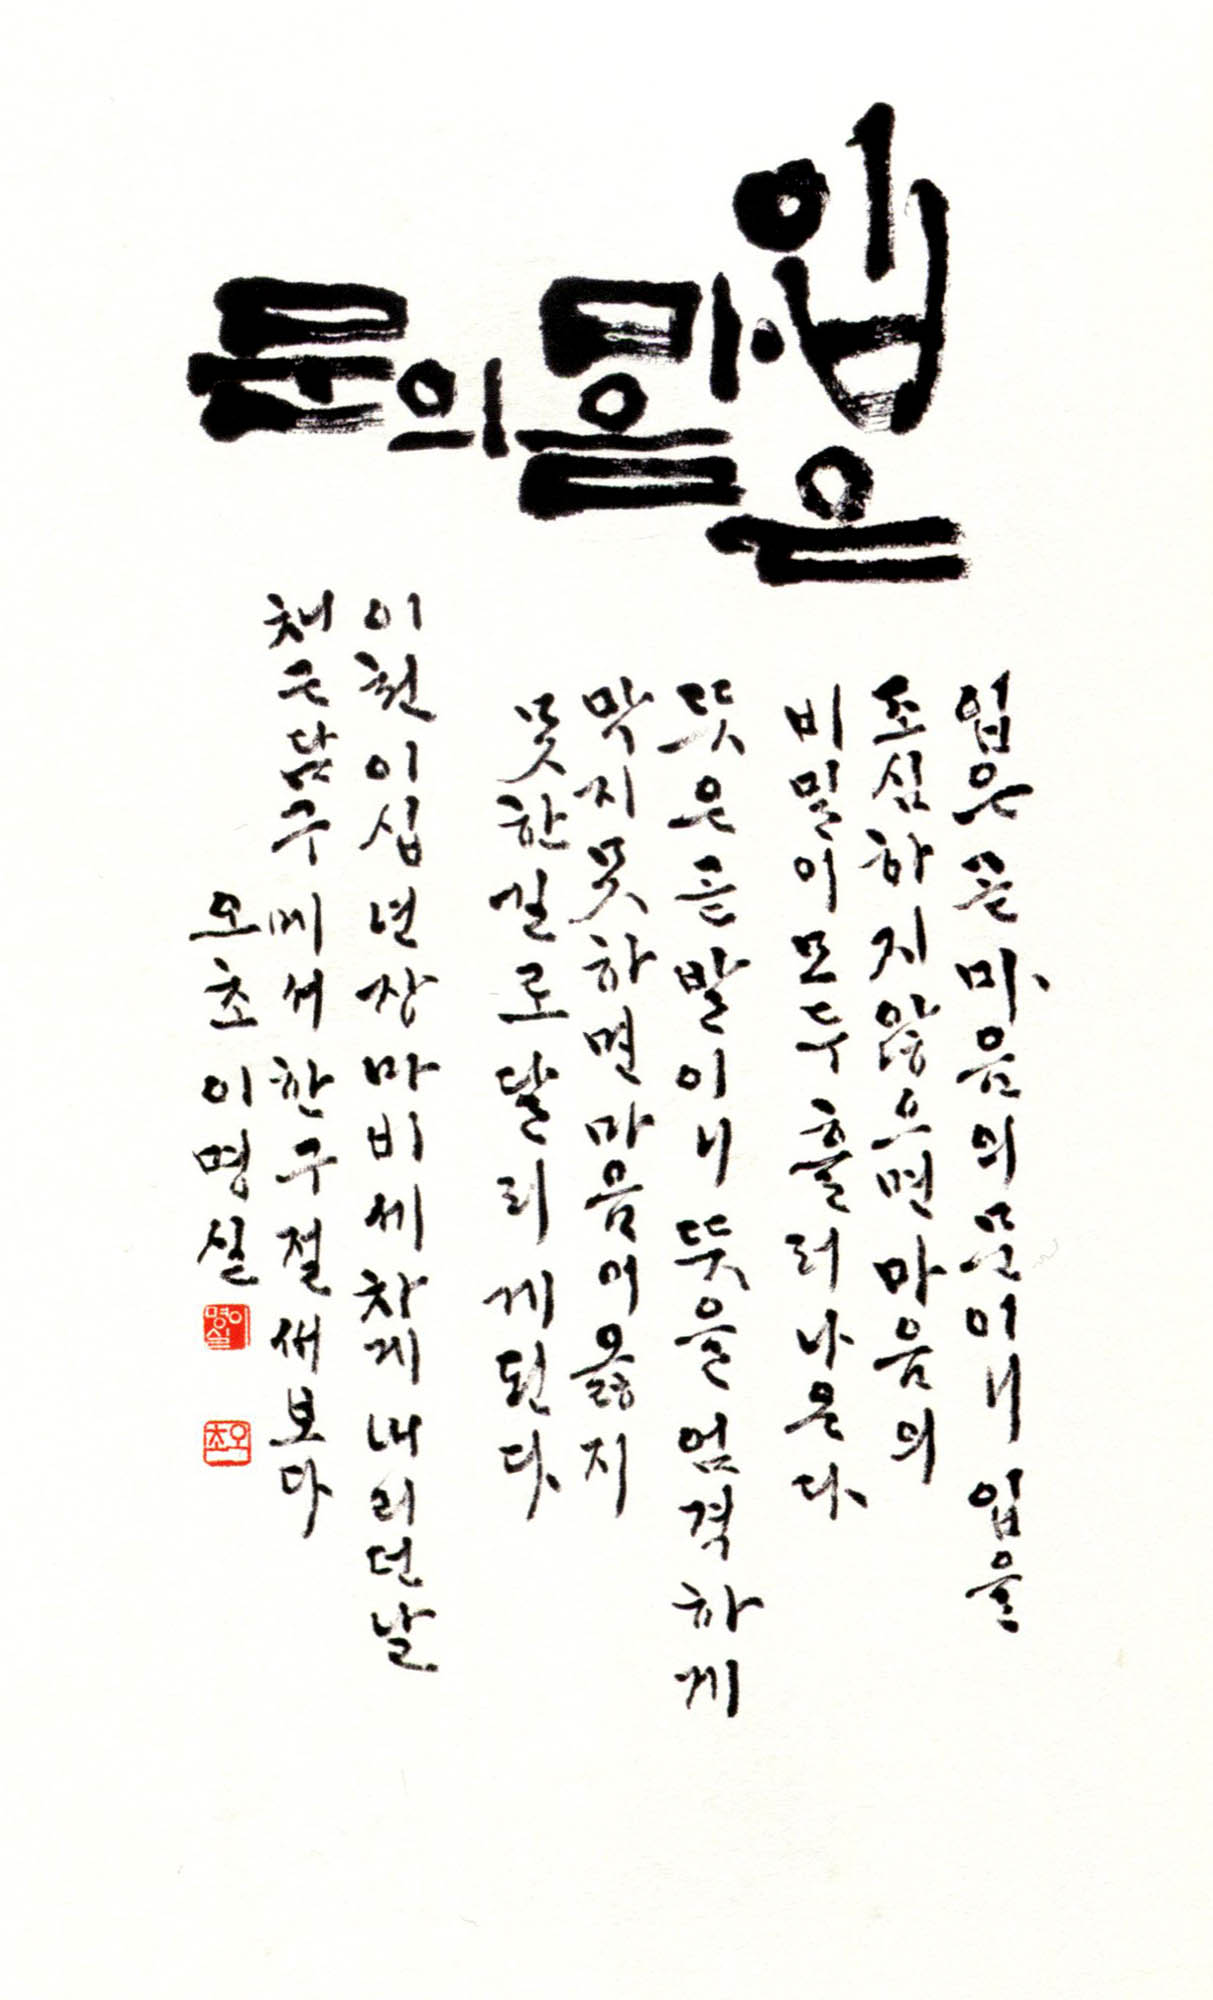 입은 마음의 문
입은 곧 마음의 문이니 입을
조심하지 않으면 마음의
비밀이 모두 흘러나온다
뜻은 곧 발이니 뜻을 엄격하게
막지 못하면 마음이 옳지
못한 길로 달리게 된다
이천이십년 장마비 세차게 내리던 날
채근담구에서 한구절 새보다
오초 이명실
이명실
오초